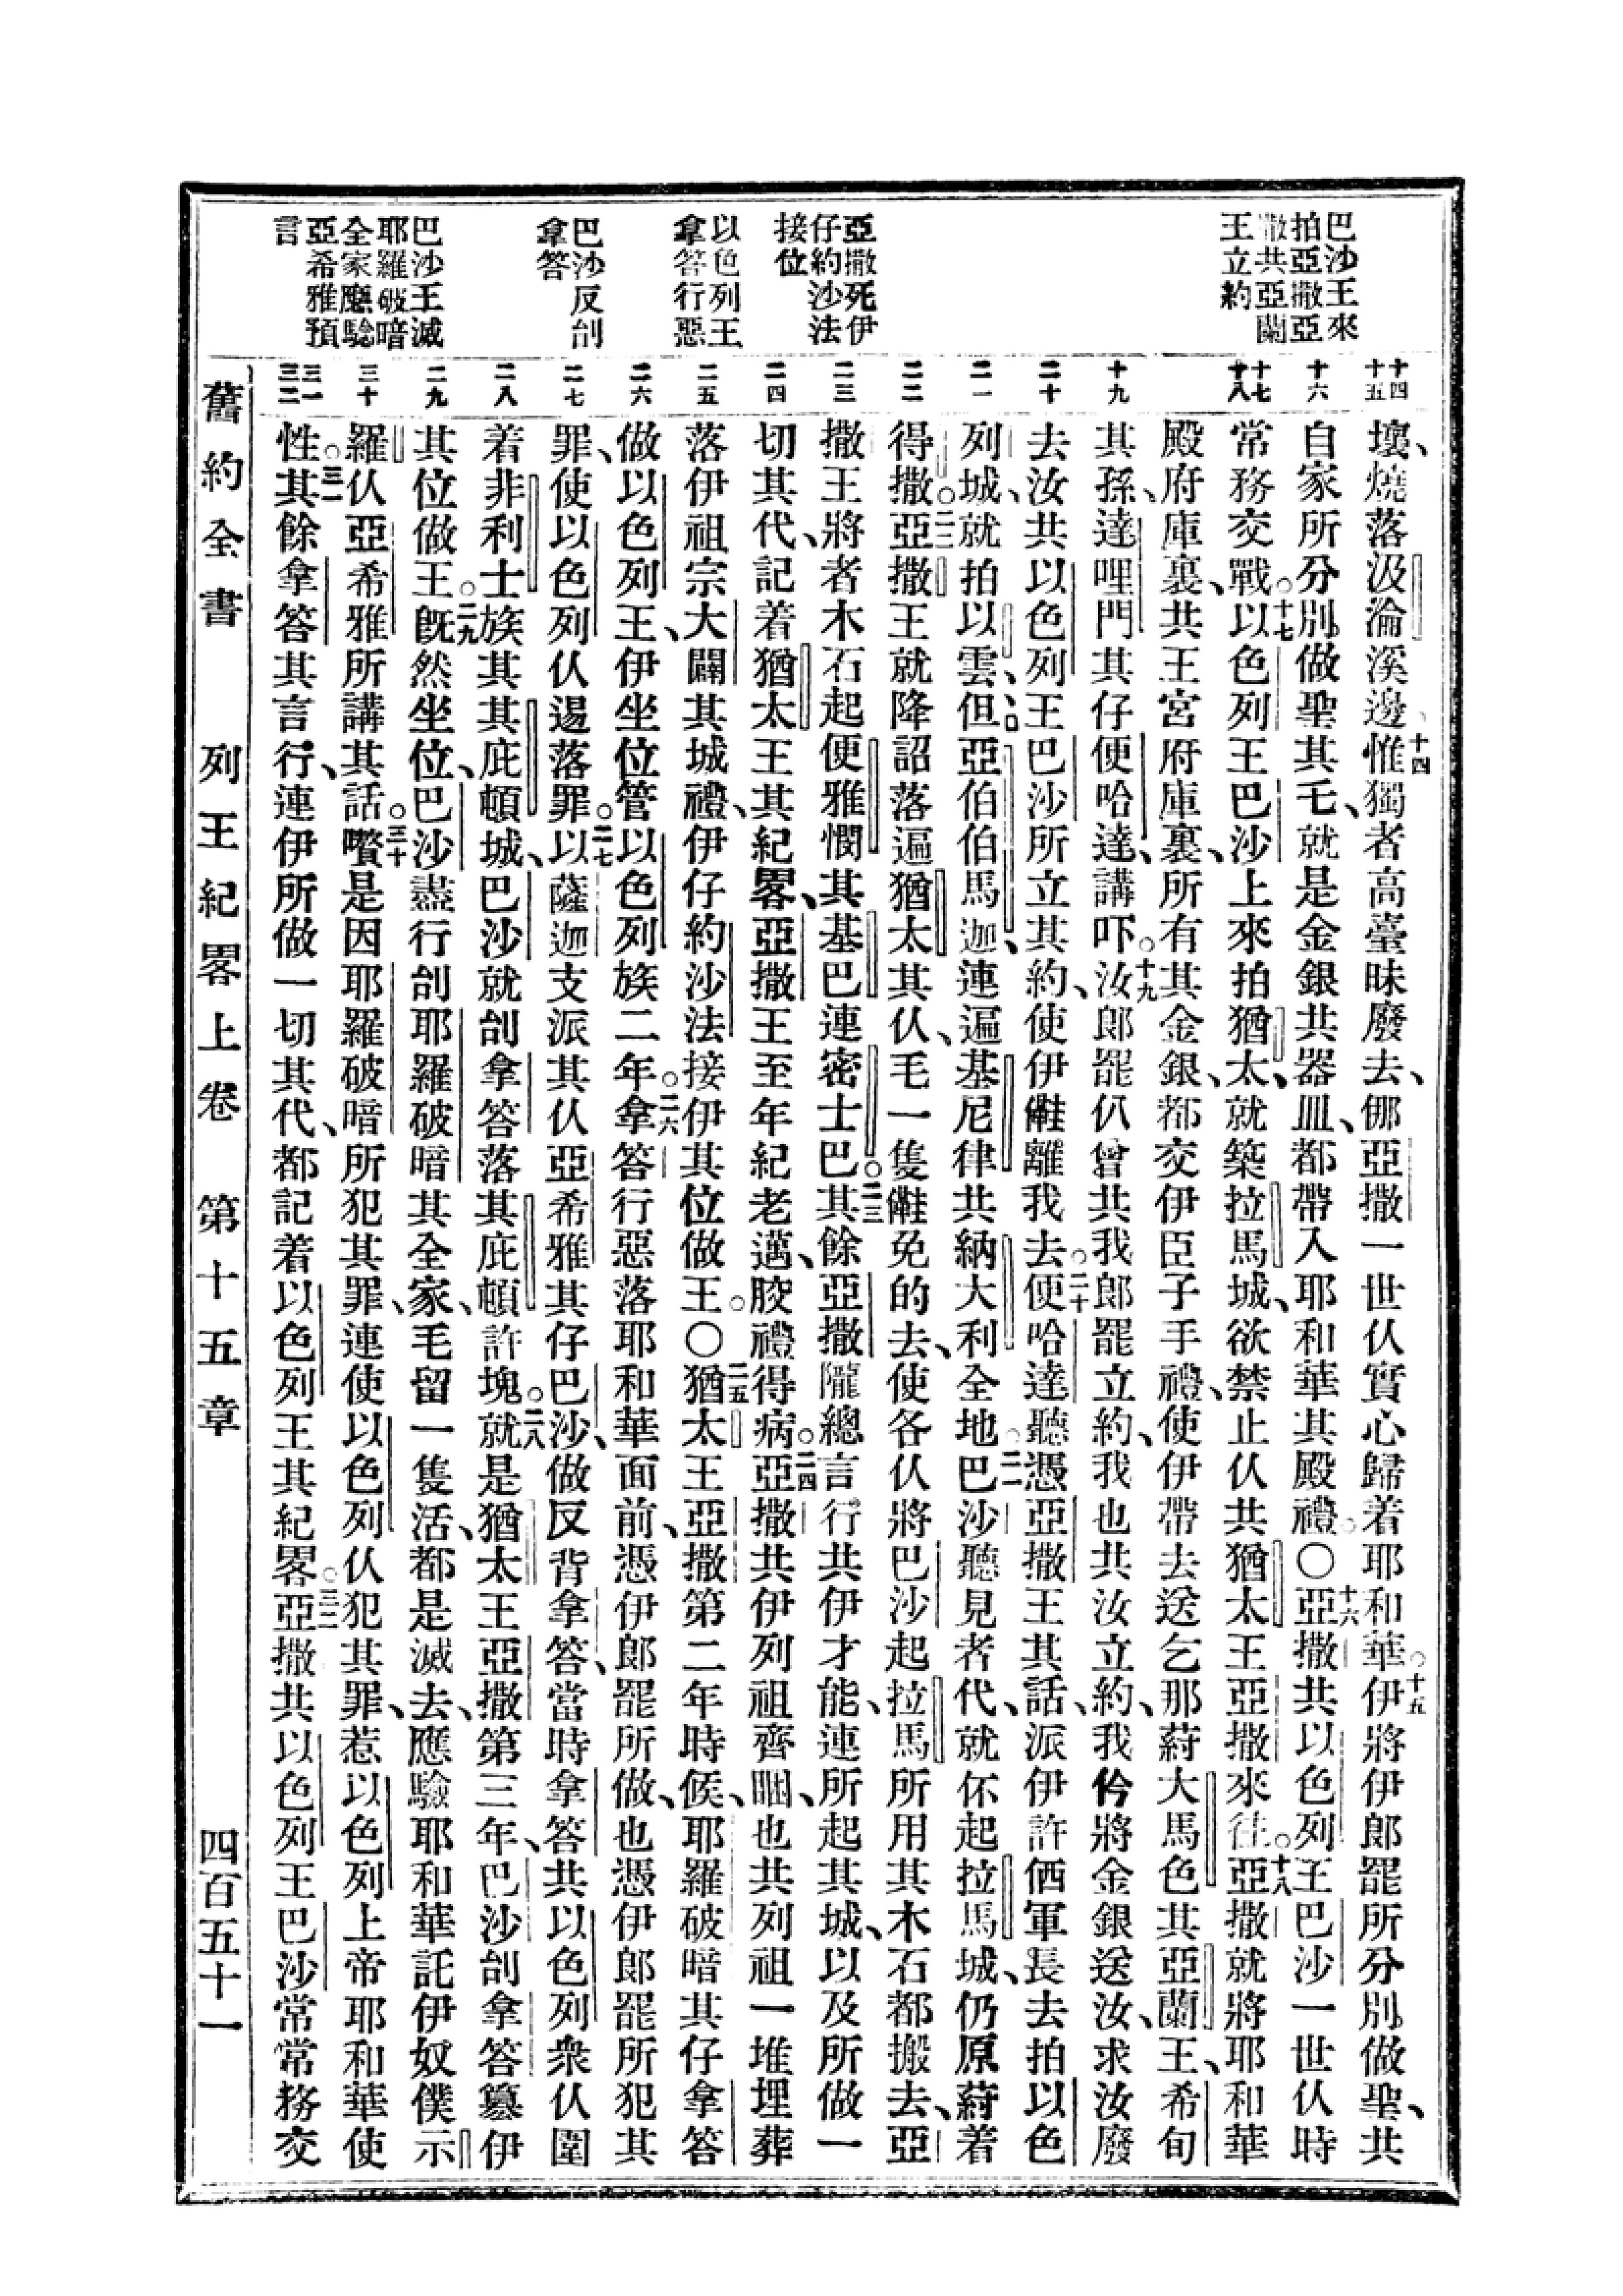 巴沙王來
拍亞撒亞
撒共亞蘭
王立約
亞撒死伊
仔約沙法
接位
以色列王
拿答行惡
巴沙反刣
拿答
巴沙王滅
耶羅破暗
全家應驗
亞希雅預
言
十四
十五
十六
十七
十八
十九
二十
二一
二二
二三
二四
二五
二六
二七
二八
二九
三十
三一
三二
壞、燒落汲淪溪邊、十四惟獨者高臺昧廢去、倻亞撒一世仈實心歸着耶和華。十五伊將伊郎罷所分別做聖、共
自家所分別做聖其乇、就是金銀共器皿、都帶入耶和華其殿禮。〇十六亞撒共以色列王巴沙一世仈時
常務交戰。十七以色列王巴沙上來拍猶太、就築拉馬城、欲禁止仈共猶太王亞撒來往。十八亞撒就將耶和華
殿府庫裏、共王宮府庫裏、所有其金銀、都交伊臣子手禮、使伊帶去送乞那蒔大馬色其亞蘭王、希旬
其孫、達哩門其仔便哈達、講吓。十九汝郎罷仈曾共我郎罷立約、我也共汝立約、我伱將金銀送汝、求汝廢
去汝共以色列王巴沙所立其約、使伊離我去。二十便哈達聽憑亞撒王其話、派伊許軍長去拍以色
列城、就拍以雲、但、亞伯伯馬迦、連遍基尼律共納大利全地。二一巴沙聽見者代、就伓起拉馬城、仍原蒔着
得撒。二二亞撒王就降詔落遍猶太其仈、毛一隻免的去、使各仈將巴沙起拉馬所用其木石都搬去、亞
撒王將者木石起便雅憫其基巴連密士巴。二三其餘亞撒隴總言行共伊才能、連所起其城、以及所做一
切其代、記着猶太王其紀畧、亞撒王至年紀老邁、骹禮得病。二四亞撒共伊列祖齊睏、也共列祖一堆埋葬
落伊祖宗大闢其城禮、伊仔約沙法接伊其位做王。〇二五猶太王亞撒第二年時候、耶羅破暗其仔拿答
做以色列王、伊坐位管以色列族二年。二六拿答行惡落耶和華面前、憑伊郎罷所做、也憑伊郎罷所犯其
罪、使以色列仈逿落罪。二七以薩迦支派其仈亞希雅其仔巴沙、做反背拿答、當時拿答共以色列衆仈圍
着非利士族其其庇頓城、巴沙就刣拿答落其庇頓許塊。二八就是猶太王亞撒第三年、巴沙刣拿答篡伊
其位做王。二九旣然坐位、巴沙盡行刣耶羅破暗其全家、毛留一隻活、都是滅去、應驗耶和華託伊奴僕示
羅仈亞希雅所講其話。三十嚽是因耶羅破暗所犯其罪、連使以色列仈犯其罪、惹以色列上帝耶和華使
性。三一其餘拿答其言行、連伊所做一切其代、都記着以色列王其紀畧。三二亞撒共以色列王巴沙常常務交
舊約全書　列王紀畧上卷　第十五章　四百五十一